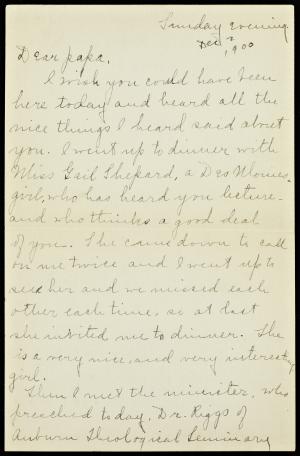 Sunday evening
Dec 2
1900
Dear papa,
I wish you could have been
here today and heard all the
nice things I heard said about
you. I went up to dinner with
Miss Gail Shepard, a Des Moines
girl, who has heard you lecture
and who thinks a good deal
of you. She came down to call
on me twice and I went up to
see her and we missed each
other each time, so at last
she invited me to dinner. She
is a very nice, and very interesting
girl.
Then I met the minister, who
preached today, Dr. Riggs of
Auburn Theological Seminary